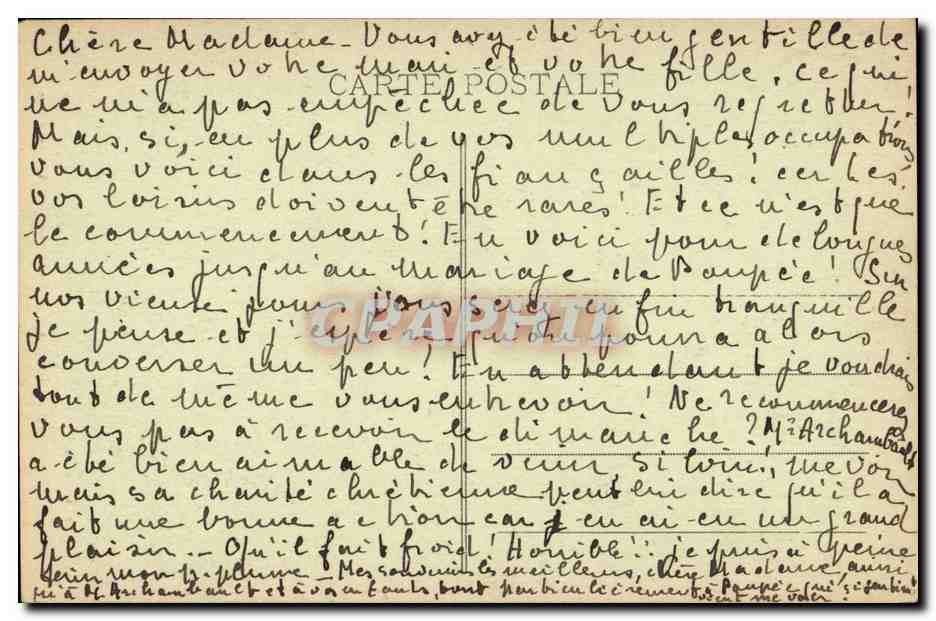 Chère Madame - Vous avez été bien gentille de
m'envoyer votre mari et votre fille, ce qui
CARTE POSTALE
ne m'a pas empêchée de vous regretter!
Mais, si, en plus de vos multiples occupations
vous voici dans les fiançailles! certes!
vos loisirs doivent être rares! Et ce n'est que
le commencement! En voici pour de longues
années jusqu'au mariage de Poupée! Sur
nos vieux jours vous serez enfin tranquille
je pense et j'espère qu'on pourra alors
CPAPHIL
converser un peu! En attendant je voudrais
tout de même vous entrevoir! Ne recommencerez
vous pas à recevoir le dimanche? Mr Archambault
a été bien aimable de venir si loin, me voir
mais sa charité chrétienne peut lui dire qu'il a
fait une bonne action car j'en ai eu un grand
plaisir. - Qu'il fait froid! Horrible!! je puis à peine
tenir mon p. plume - Mes souvenirs les meilleurs, chère Madame, aussi
à M Archambault et à vos enfants, tout particulièrement à Poupée qui si gentiment
vient me voir!